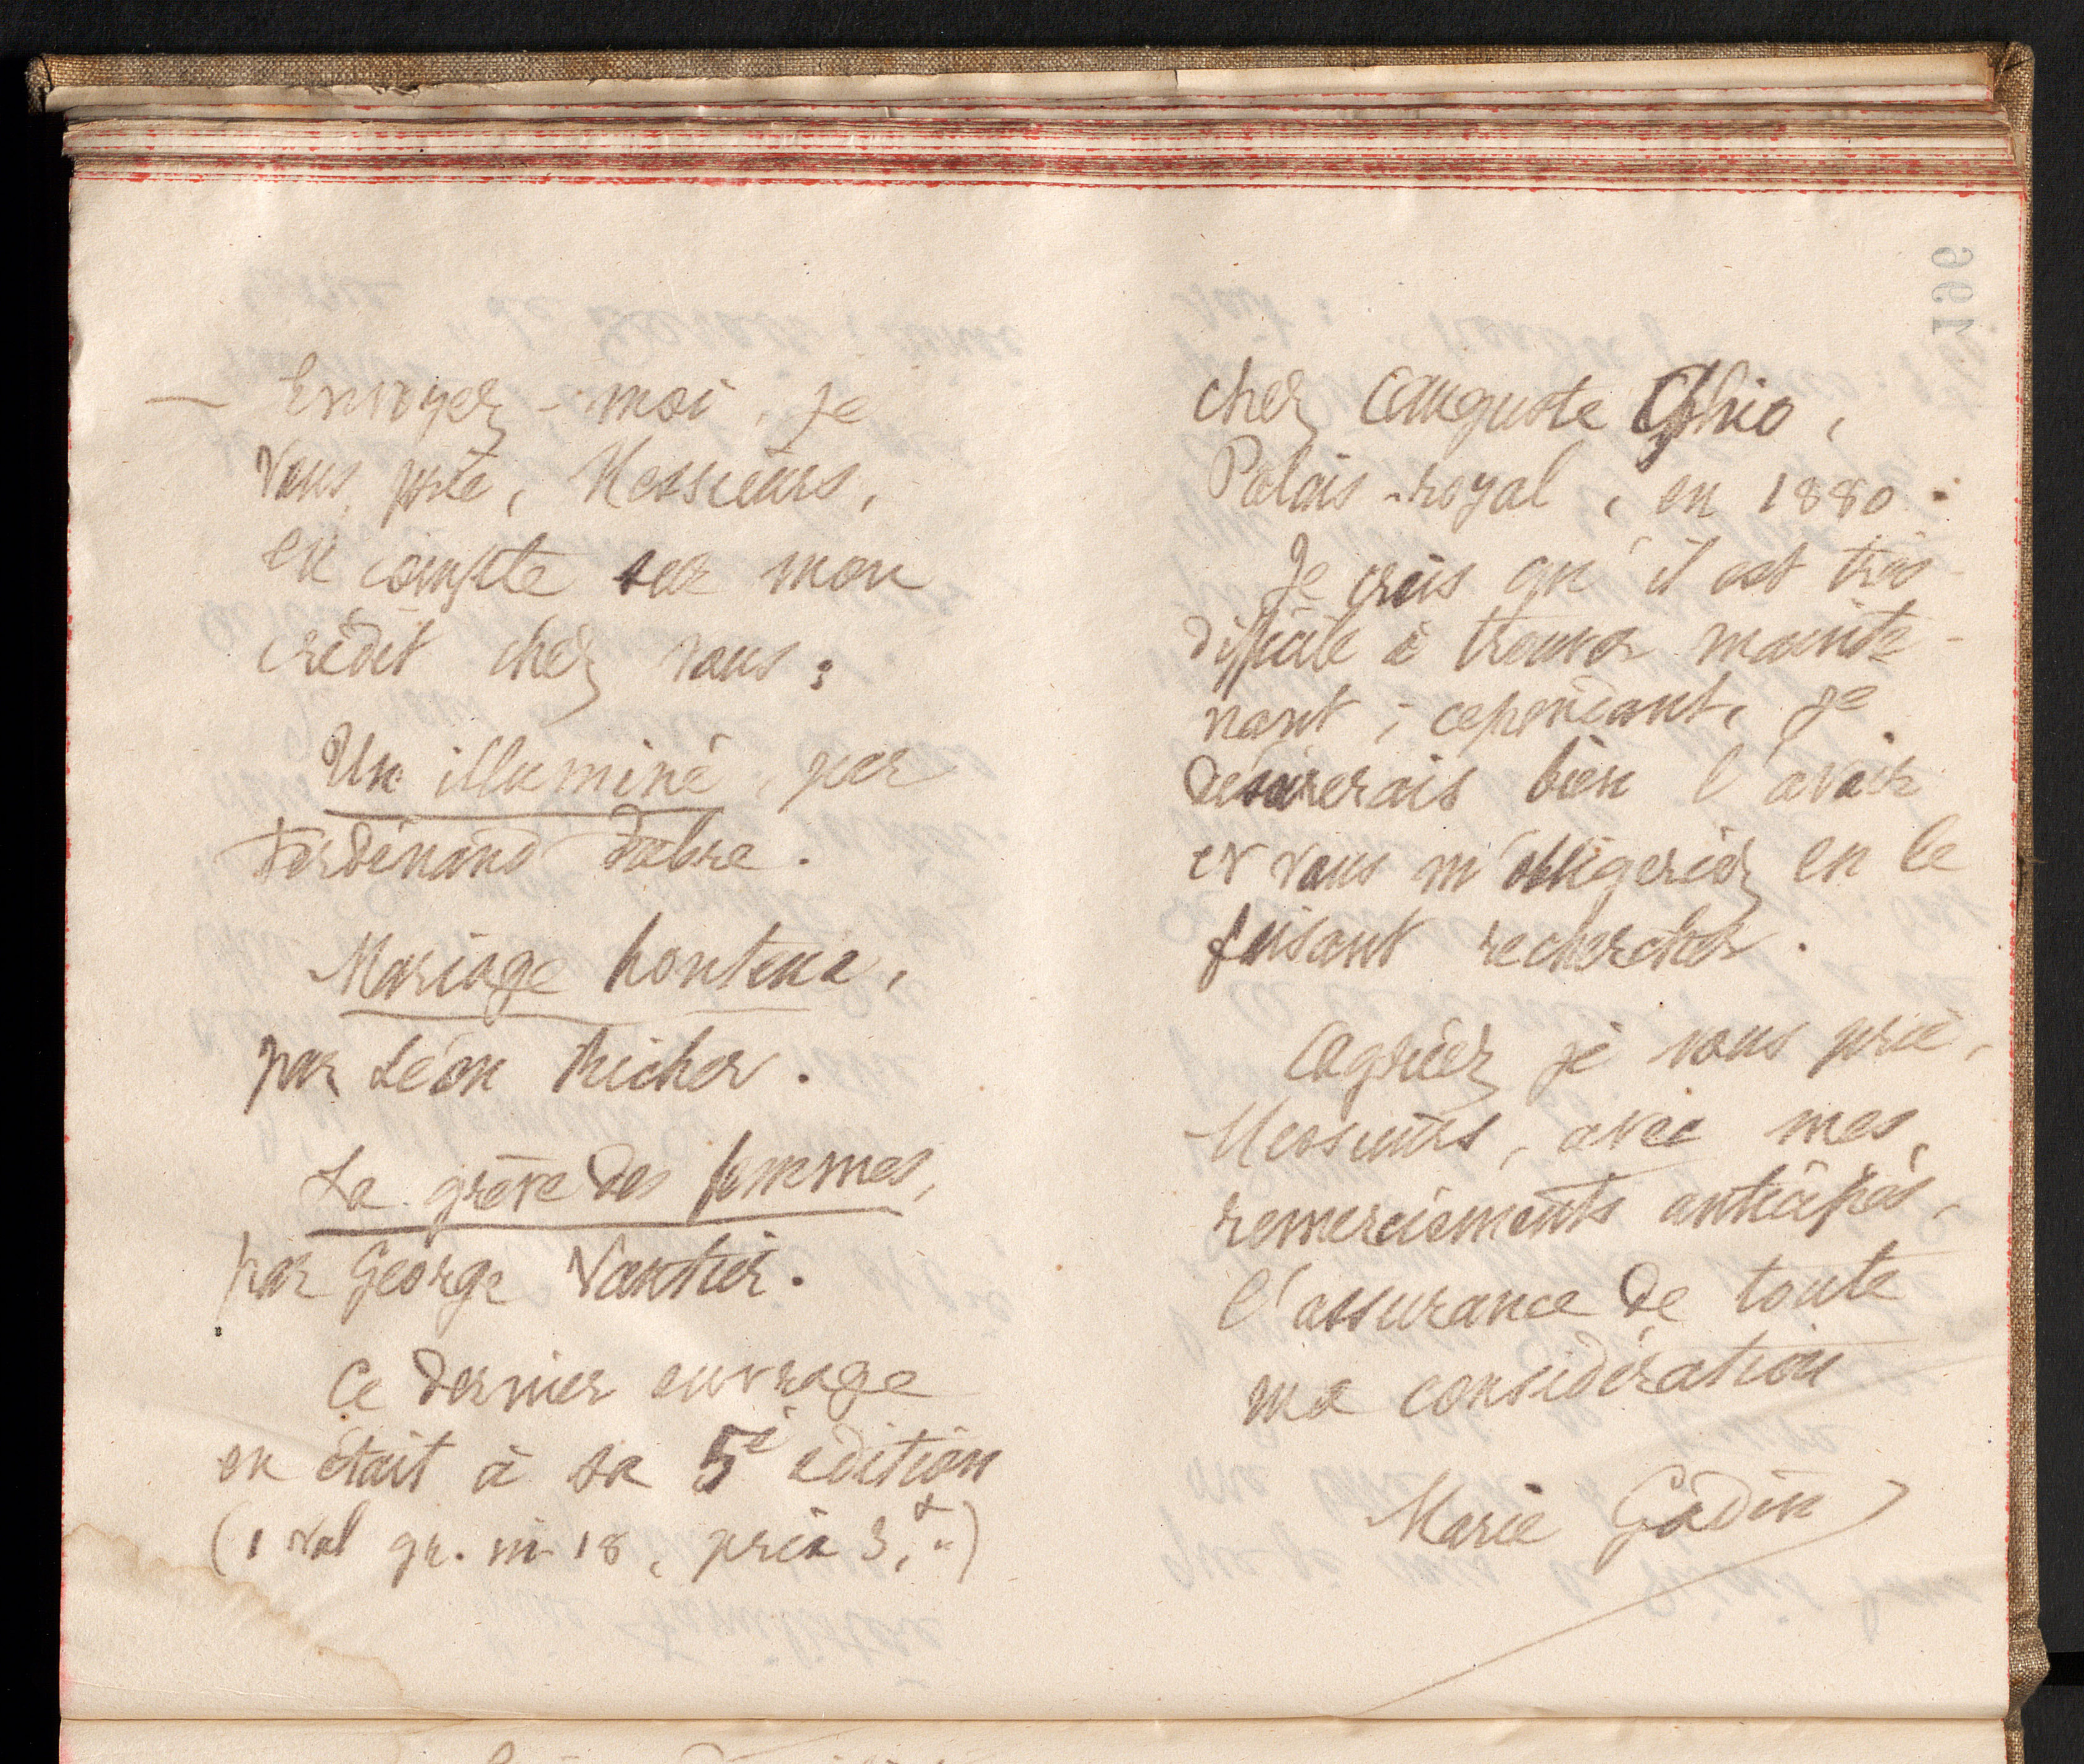 — Envoyez-moi, je
vous prie, Messieurs,
en compte sur mon
crédit chez vous :
Un illuminé, par
Ferdinand Fabre.
Mariage honteux,
par Léon Richer.
La grève des femmes,
par George Vautier.
Ce dernier ouvrage
en était à sa 5e édition
(1 vol gr. in-18, prix 3,f..)
chez Auguste Ghio,
Palais-royal, en 1880.
Je crois qu'il est très
difficile à trouver mainte-
nant ; cependant, je
désirerais bien l'avoir
et vous m'obligeriez en le
faisant rechercher.
Agréez je vous prie,
Messieurs, avec mes
remerciements anticipés,
l'assurance de toute
ma considération
Marie Godin
196